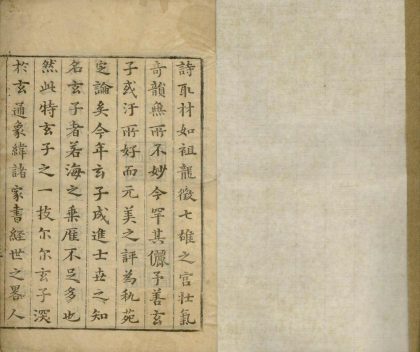 詩取材如祖龍徵七雄之宮壯氣
奇韻無所不妙今罕其儷予善玄
子或汙所好而元美之評為執苑
定論矣今年玄子成進士世之知
名玄子者若海之乘雁不足多也
然此特玄子之一技尔尔玄子深
於玄通象緯諸家書經世之畧人